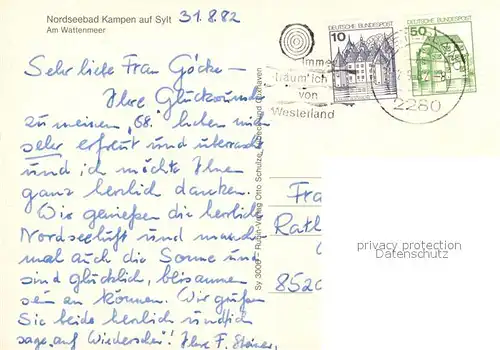 Nordseebad Kampen auf Sylt
Am Wattenmeer
31.8.82
Sehr liebe Frau Göcke –
Ihre Glückwün
zu meinem „68. haben mich
sehr erfreut und überrascht
und ich möchte Ihnen
ganz herzlich danken.
Wir genießen die herrliche
Nordseeluft und manch-
mal auch die Sonne und
sind glücklich,
sein zu können. Wir grüßen
Sie beide herzlich und ich
sage „auf Wiedersehen"! Ihre F.
Sy 3006 – Rubin-Verlag Otto Schulze, Lübeck und Cuxhaven
Imme
träum' ich
von
Westerland
DEUTSCHE BUNDESPOST
10
DEUTSCHE BUNDESPOST
50
2280
Fra
Rath
8520
privacy protection
Datenschutz